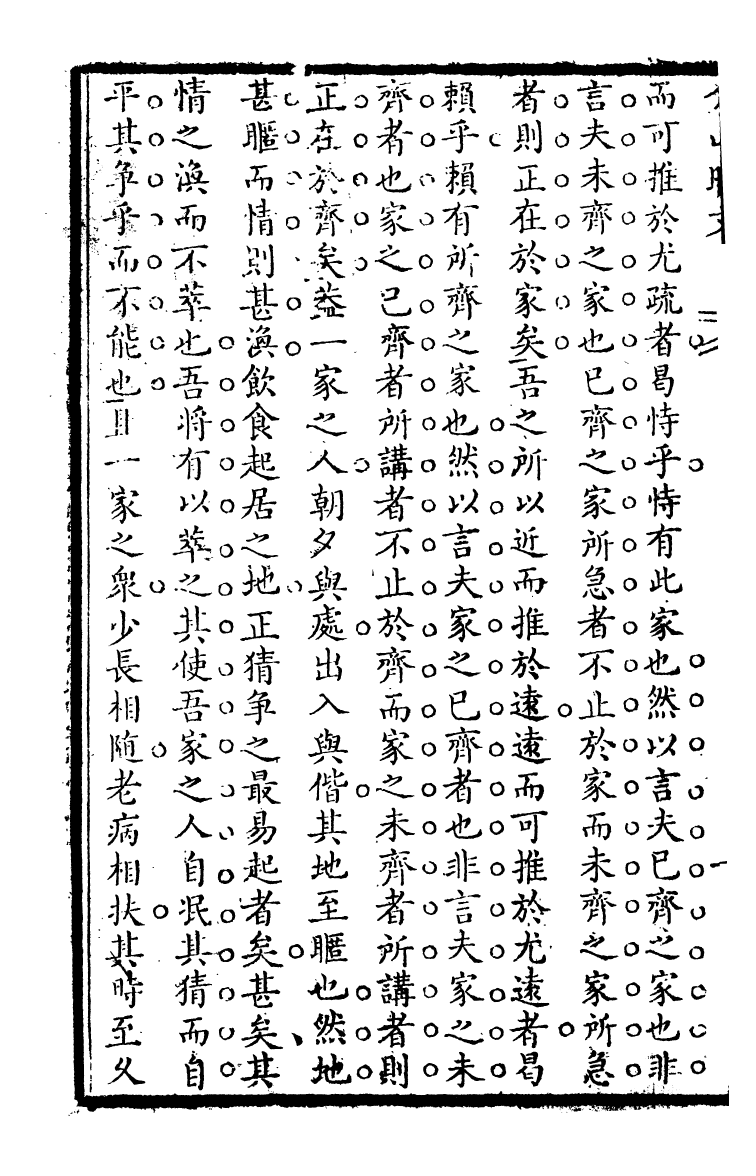 而可推於尤疏者曷恃乎恃有此家也然以言夫已齊之家也非
言夫未齊之家也已齊之家所急者不止於家而未齊之家所急
者則正在於家矣吾之所以近而推於遠遠而可推於尤遠者曷
賴乎賴有所齊之家也然以言夫家之已齊者也非言夫家之未
齊者也家之已齊者所講者不止於齊而家之未齊者所講者則
正在於齊矣葢一家之人朝夕與處出入與偕其地至暱也然地
甚暱而情則甚渙飲食起居之地正猜争之最易起者矣甚矣其
情之渙而不萃也吾將有以萃之其使吾家之人自泯其猜而自
平其争乎而不能也且一家之衆少長相随老病相扶其時至久